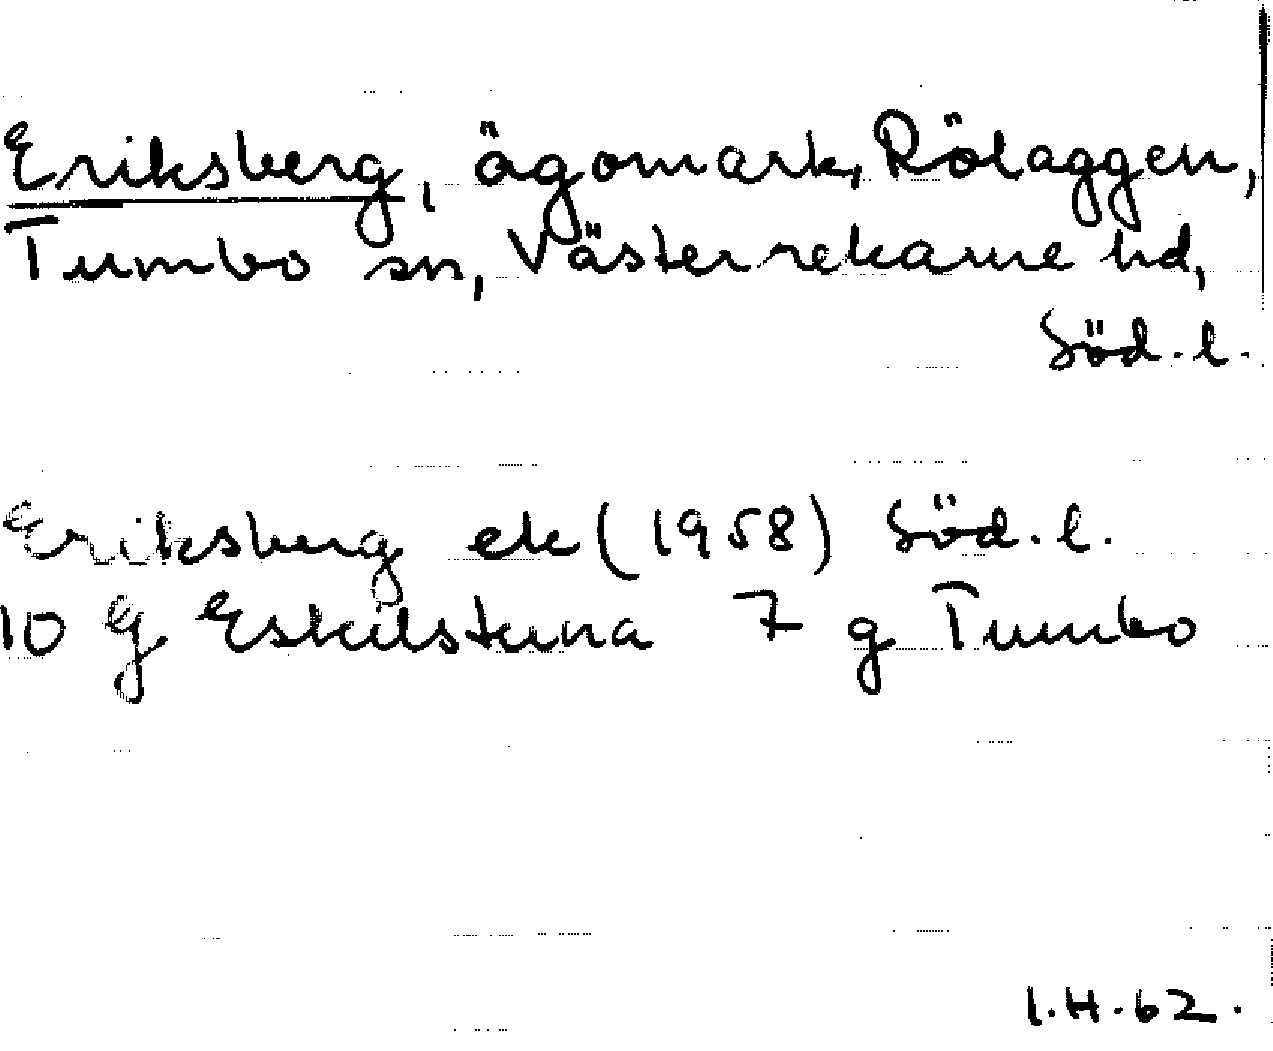 Eriksberg, ägomark, Rölaggen,
Tumbo sn, Västerrekarne hd,
Söd.l.
Eriksberg ek (1958) Söd.l.
10 G Eskilstuna 7 g Tumbo
I.H.62.